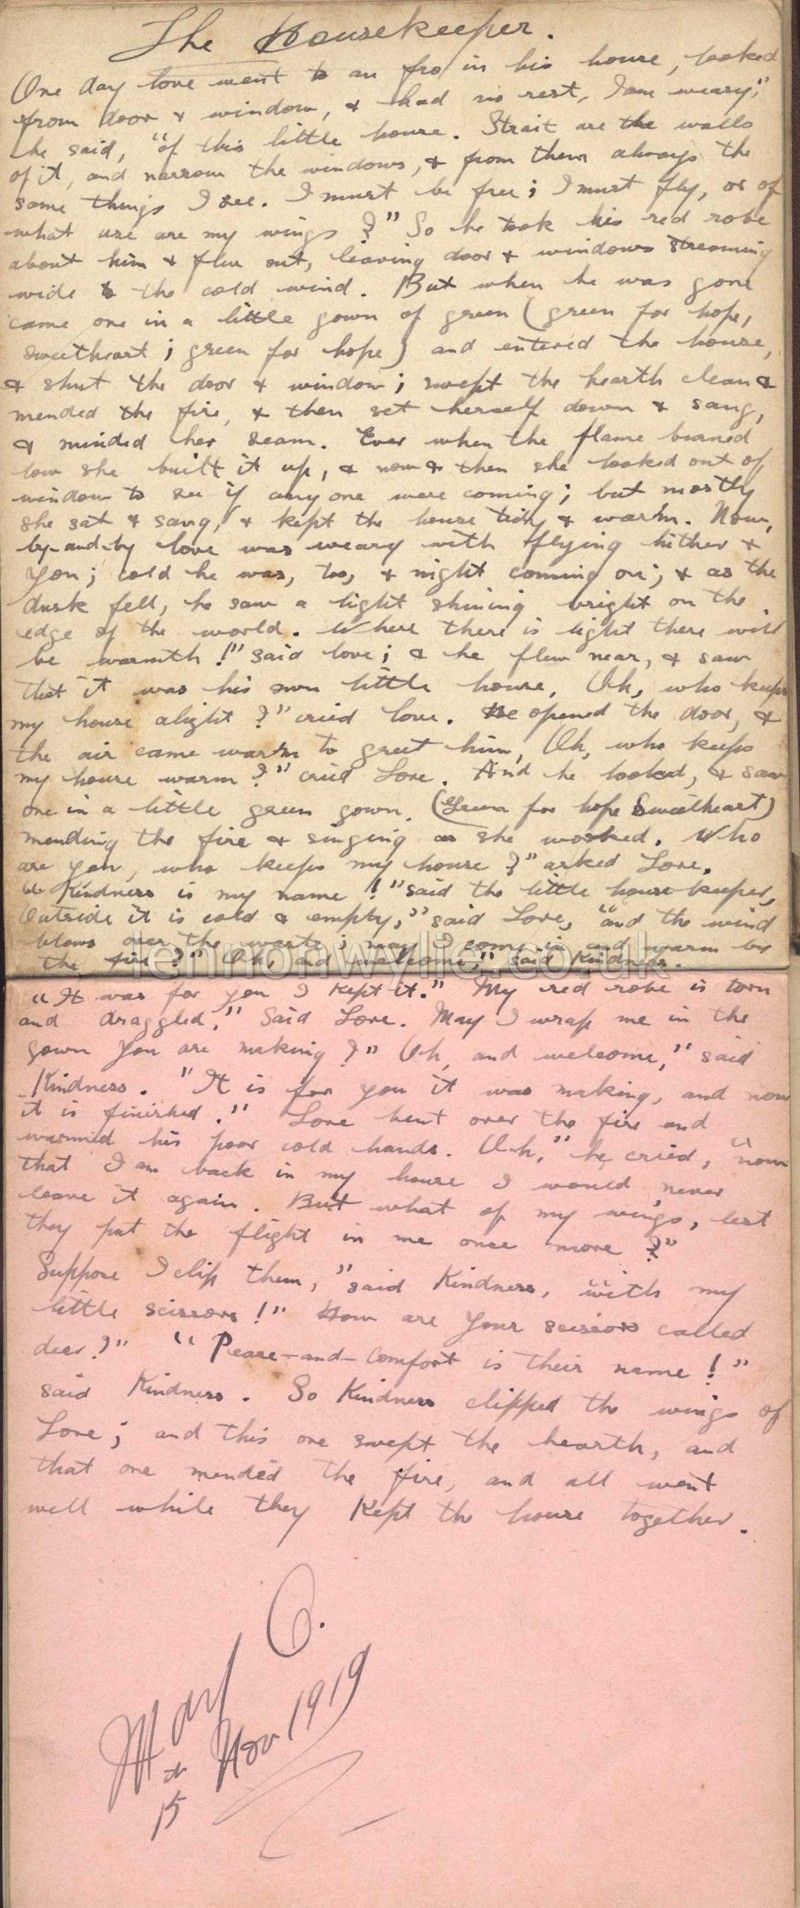 The Housekeeper.
One day love went to an fro in his house, looked
from door & window, & had no rest, I am weary,"
he said, "of this little house. Strait are the walls
of it, and narrow the windows, & from them always the
same things I see. I must be free; I must fly, or of
what use are my wings?" So he took his red robe
about him & flew out, leaving door & windows streaming
wide to the cold wind. But when he was gone
came one in a little gown of green (green for hope,
sweetheart; green for hope) and entered the house,
& shut the door & window; swept the hearth clean &
mended the fire, & then set herself down & sang,
& minded her seam. Ever when the flame burned
low she built it up, & now & then she looked out of
window to see if any one were coming; but mostly
she sat & sang, & kept the house tidy & warm. Now,
by-and-by love was weary with flying hither &
yon; cold he was, too, & night coming on; & as the
dusk fell, he saw a light shining bright on the
edge of the world. Where there is light there will
be warmth!" said love; & he flew near, & saw
that it was his own little house. Oh, who keeps
my house alight?" cried love. He opened the door, &
the air came warm to greet him, Oh, who keeps
my house warm?" cried Love. And he looked, & saw
one in a little green gown. (Green for hope Sweetheart)
mending the fire & singing as she worked. Who
are you, who keeps my house?" asked Love.
Kindness is my name!" said the little house-keeper,
Outside it is cold & empty," said Love, "and the wind
blows over the waste; may I come in and warm by
the fire?" Oh, and welcome," said Kindness.
lennonwylie.co.uk
"It was for you I kept it." My red robe is torn
and draggled," Said Love. May I wrap me in the
gown you are making?" Oh, and welcome," said
Kindness. "It is for you it was making, and now
it is finished." Love bent over the fire and
warmed his poor cold hands. Oh," he cried, "now
that I am back in my house I would never
leave it again. But what of my wings, lest
they put the flight in me once more?"
Suppose I clip them," said Kindness, "with my
little scissors!" How are your scissors called
dear?" "Peace-and-Comfort is their name!"
said Kindness. So Kindness clipped the wings of
Love; and this one swept the hearth, and
that one mended the fire, and all went
well while they kept the house together.
Mary O.
15th Nov 1919